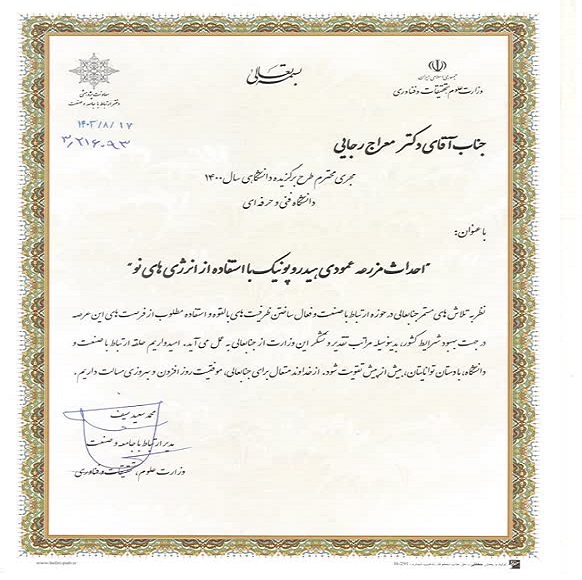 بسمه تعالی
جمهوری اسلامی ایران
وزارت علوم، تحقیقات و فناوری
معاونت پژوهشی
دفتر ارتباط با جامعه و صنعت
۱۴۰۲/۸/۱۷
۳/۲۱۶۰۹۳
جناب آقای دکتر معراج رجایی
مجری محترم طرح برگزیده دانشگاهی سال ۱۴۰۰
دانشگاه فنی و حرفه ای
با عنوان:
"احداث مزرعه عمودی هیدروپونیک با استفاده از انرژی های نو"
نظر به تلاش های مستمر جنابعالی در حوزه ارتباط با صنعت و فعال ساختن ظرفیت های بالقوه و استفاده مطلوب از فرصت های این عرصه
در جهت بهبود شرایط کشور، بدینوسیله مراتب تقدیر و تشکر این وزارت از جنابعالی به عمل می آید. امیدواریم حلقه ارتباط با صنعت و
دانشگاه، با دستان توانایتان، بیش از پیش تقویت شود. از خداوند متعال برای جنابعالی، موفقیت روز افزون و پیروزی مسالت داریم.
محمد سعید سیف
مدیر ارتباط با جامعه و صنعت
وزارت علوم، تحقیقات و فناوری